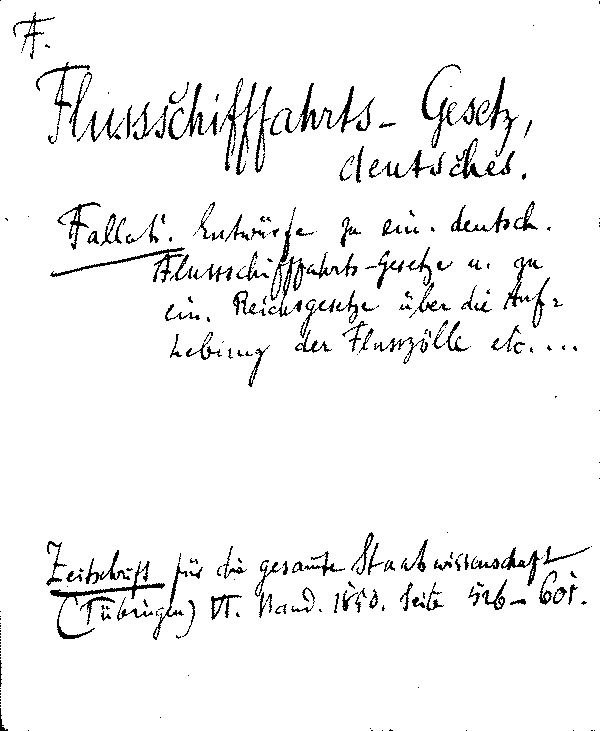 F.
Flussschifffahrts- Gesetz,
deutsches.
Fallati. Entwürfe zu ein. deutsch.
Flussschifffahrts-Gesetze u. zu
ein. Reichsgesetze über die Auf=
hebung der Flusszölle etc....
Zeitschrift für die gesamte Staatswissenschaft
(Tübingen) VI. Band. 1850. Seite 526-601.